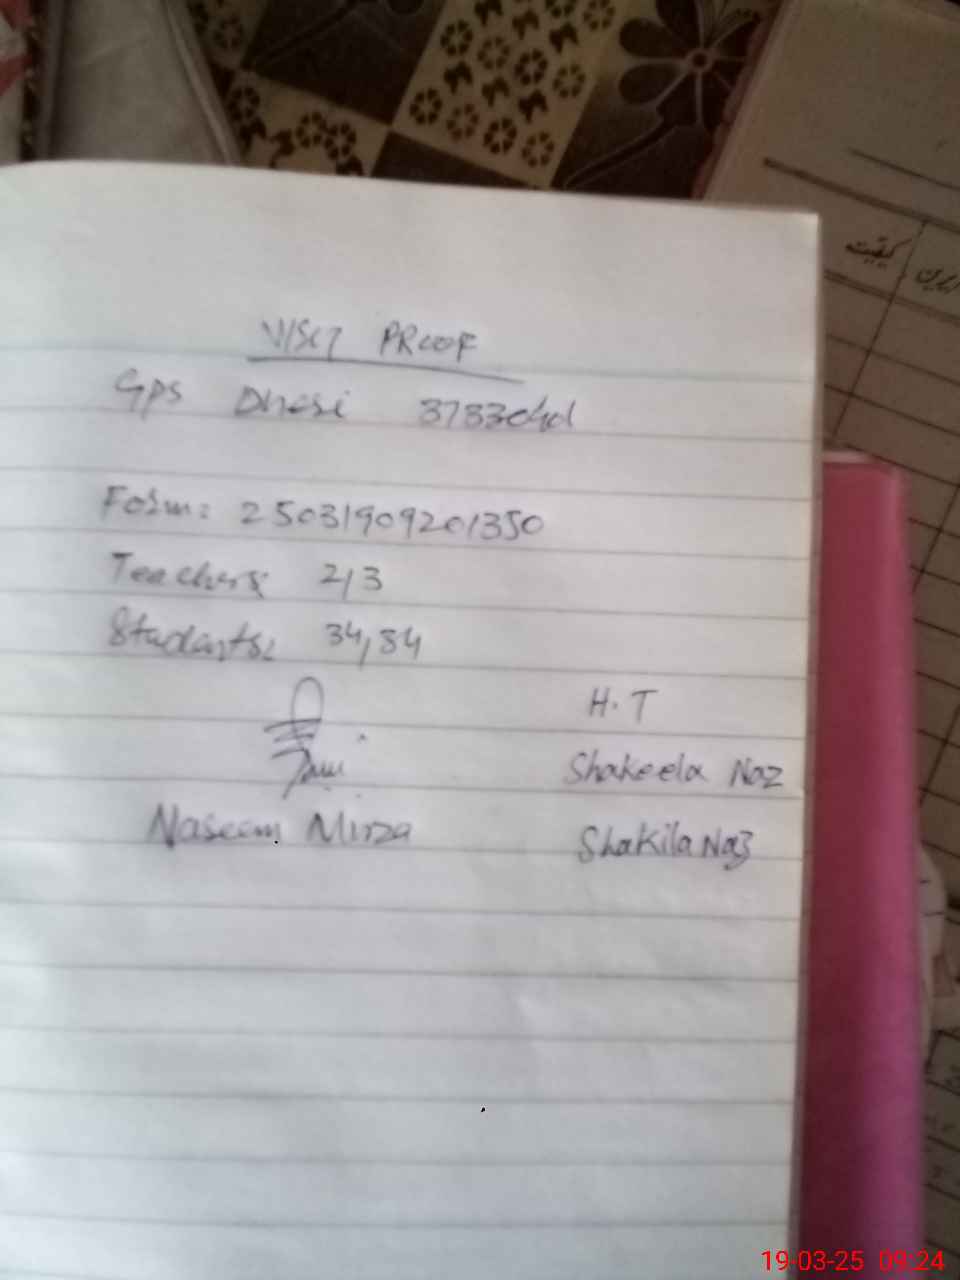 VISIT PROOF
GPS Dhesi
Form: 25031909201350
Teachers: 2/3
Students: 34/84
H.T
Shakeela Naz
Naseem Mirza
Shakila Naz
کیفیت
19-03-25 09:24